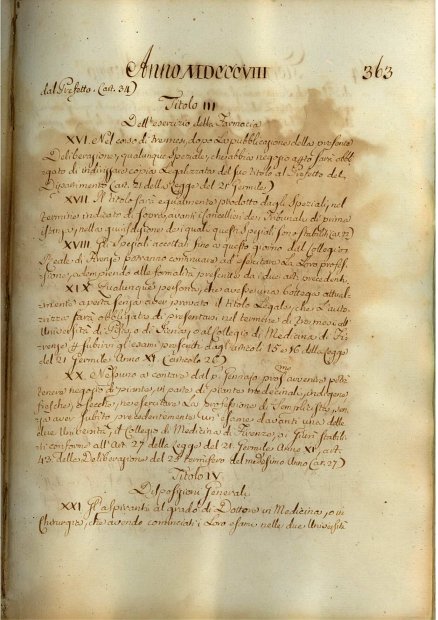 Anno MDCCCVIII
363
dal Prefetto. (art. 34)
Titolo III
Dell'esercizio della Farmacia
XVI. Nel corso di tre mesi, dopo la pubblicazione della presente
Deliberazione, qualunque Speziale, che abbia negozio aperto sarà obbli-
gato di indirizzare copia legalizzata del suo titolo al Prefetto del
Dipartimento (art. 21 della Legge del 21 Germile)
XVII Il titolo sarà egualmente prodotto dagli Speziali, nel
termine indicato di sopra, avanti i Cancellieri dei Tribunali di prima
istanza, nella giurisdizione dei quali questi Speziali sono stabiliti (art. 22)
XVIII Gli Speziali accettati fino a questo giorno dal Collegio
Reale di Firenze potranno continuare ad esercitare la loro profes-
sione, adempiendo alle formalità prescritte da i due art. precedenti
XIX Qualunque persona, che avesse una bottega attual-
mente aperta senza aver provato il titolo legale, che l'auto-
rizza sarà obbligata di presentarsi nel termine di tre mesi all'
Università di Pisa, o di Siena, o al Collegio di Medicina di Fi-
renze, e subirvi gli esami prescritti dagli articoli 15 e 16 della Legge
del 21 Germile Anno XI. (articolo 26)
XX. Nessuno a contare dal p.º Gennajo pross.mo avvenire potrà
tenere negozio di piante, o parti di piante medicinali, indigene
fresche, o secche, nè esercitare la professione di Semplicista, sen-
za aver subito precedentemente un esame davanti una delle
due Università, il Collegio di Medicina di Firenze, o i Giurì stabili-
ti conforme all'Art. 27 della Legge del 21. Germile Anno XI, art.
43 della Deliberazione del 25 termifero del medesimo Anno (art. 27)
Titolo IV
Disposizioni Generali
XXI. Gli aspiranti al grado di Dottore in Medicina, o in
Chirurgia, che avendo cominciati i loro esami nelle due Università